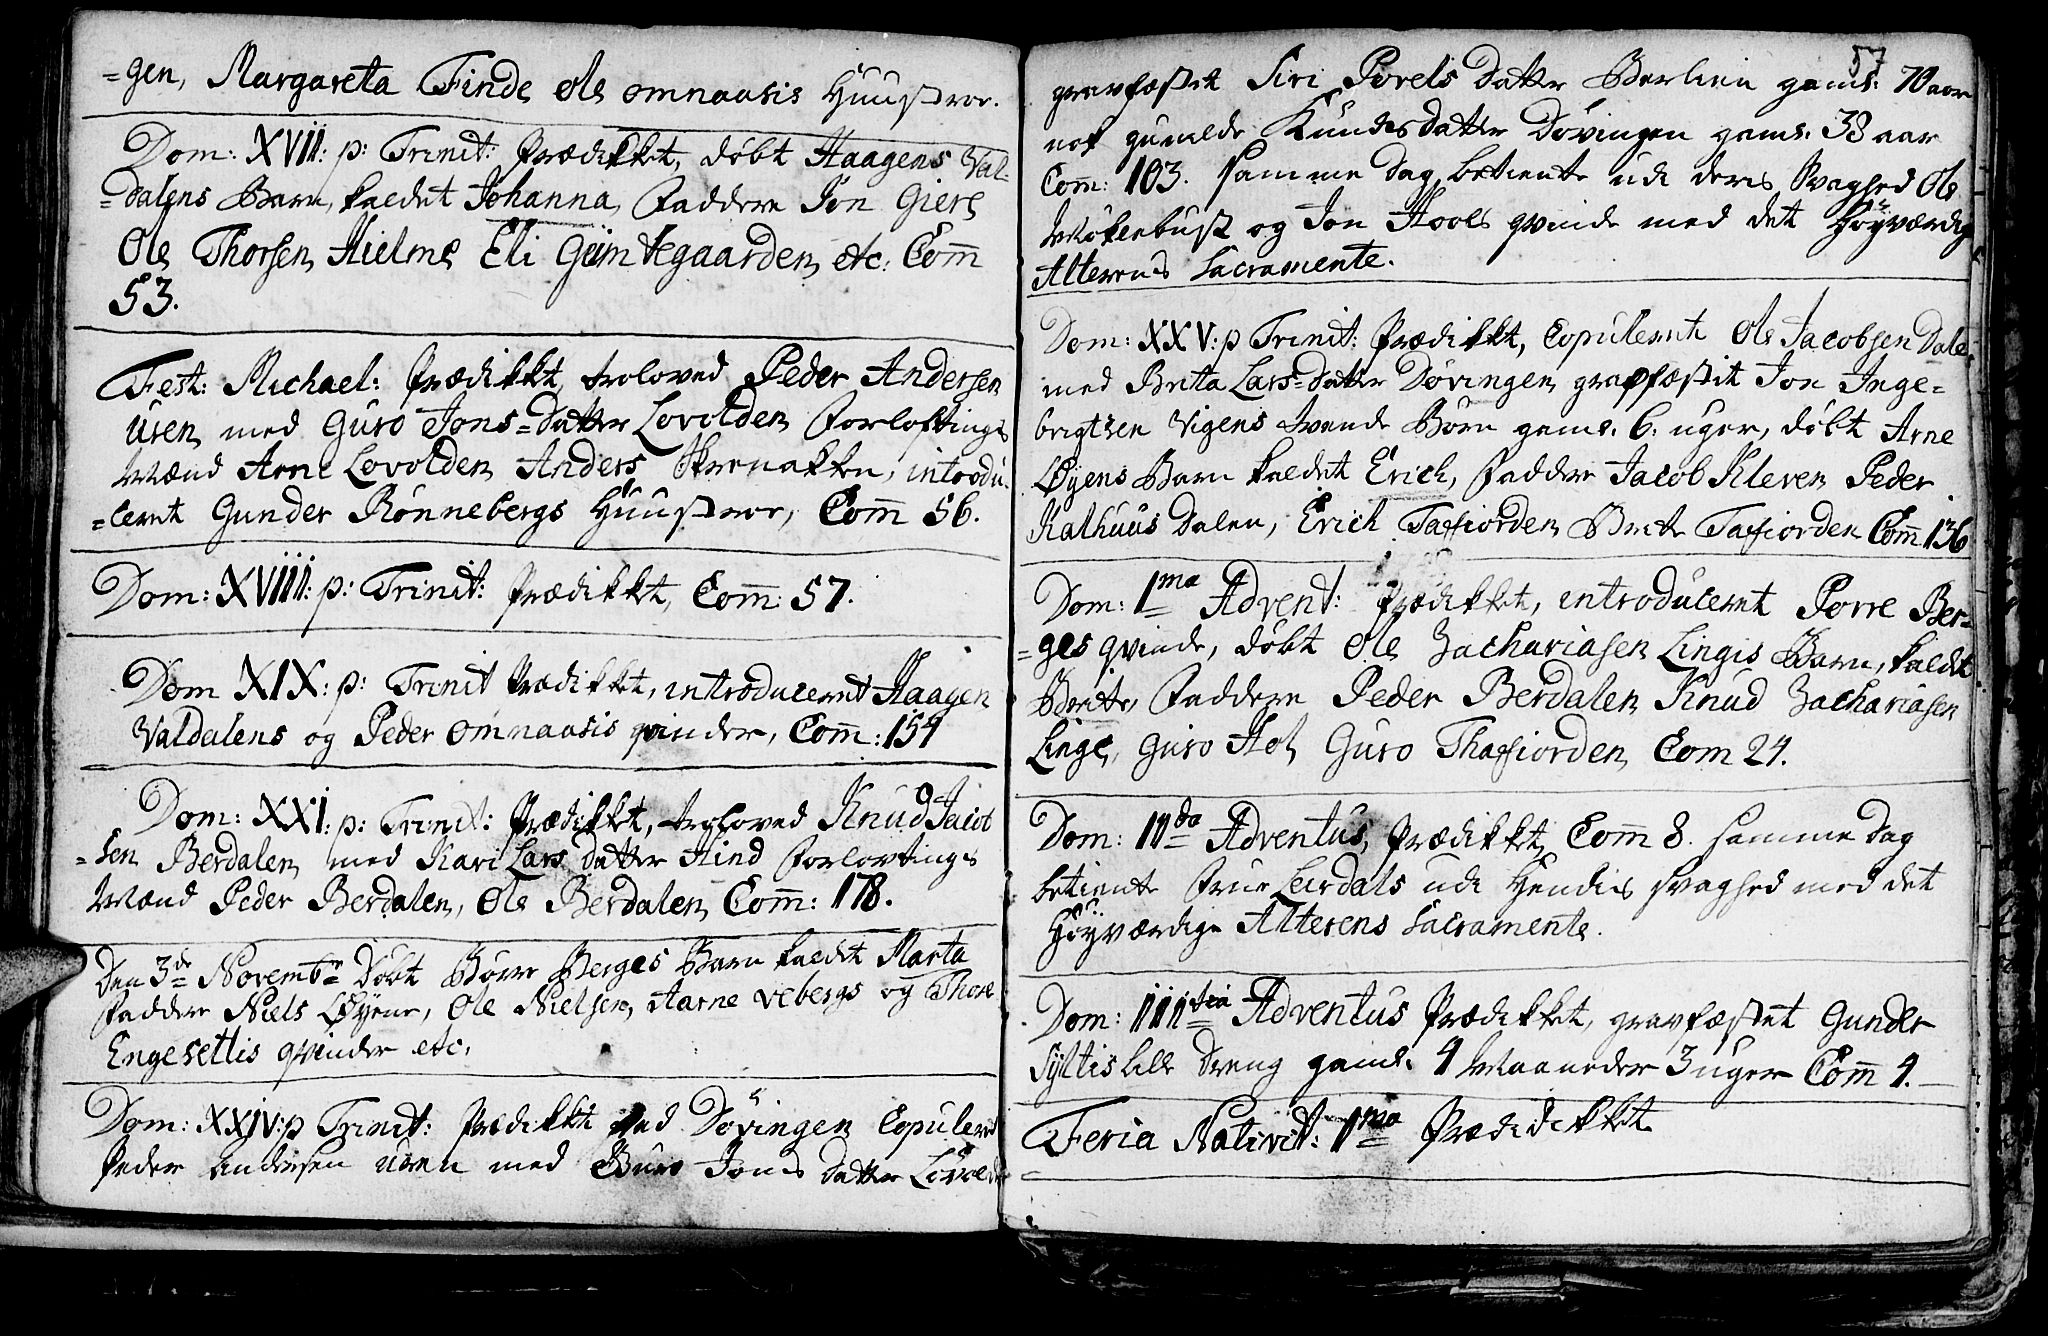 =gen, Margareta Finde Ole omnaasis Huustroe.
Dom: XVII: p: Trinit: Prædikket, døbt Haagens Val-
=dalens Barn, kaldet Johanna, Faddere Jon Giere
Ole Thorsen Hielme Eli Grimtegaarden, etc: Com̄
53.
Fest: Michael: Prædikket, troloved Peder Andersen
Uren, med Guro Jons=datter Lovolden Forloftings
Mænd Arne Lovolden, Anders introdu-
=cerit Gunder Rønnebergs Huustroe, Com̄ 56.
Dom: XVIII: p: Trinit: Prædikket, Com̄: 57.
Dom XIX: p: Trinit Prædikket, introducerit Haagen
Valdalens og Peder omnaasis qvinder, Com̄: 154
Dom: XXI: p: Trinit: Prædikket, troloved Knud Jacob
=sen Berdalen, med Kari Lars datter Hind Forloftings
Mænd Peder Berdalen, Ole Berdalen, Com̄: 178.
Den 3de Novembr Døbt Børre Berges Barn kaldet Marta
Faddere Niels Øyene, Ole Nielsen, Aarne Vebergs og Thore
Engesettis qvinder etc.
Dom: XXIV: p Trinit: Prædikket ved Døvingen Copulerit
Peder Andersen Uren med Guro Jons datter Lovolden
57
gravfæstet Siri Povels datter Berlien gaml: 70 aar
nok gunilde Knudsdatter Døvingen gaml: 38 aar
Com̄: 103. samme dag betiente udi deris svaghed Ole
Møklebust og Jon Hools qvinde med det Høyværdige
Alterens Sacramente.
Dom: XXV: p Trinit: Prædikket, Copulerit Ole Jacobsen Dale
med Brita Lars=datter Døvingen, gravfæstit Jon Inge=
brigtsen Vigens tvende Børn gaml. 6. uger, døbt Arne
Øyens Barn kaldet Erich, Faddere Jacob Kleven Peder
Kalhuus dalen, Erich Taffiorden Brite Taffiorden Com̄ 136
Dom: 1ma Advent: Prædikket, introducerit Porre Ber=
=ges qvinde, døbt Ole Zachariasen Lingis Barn, kaldet
Birte, Faddere Peder Berdalen Knud Zachariasen
Linge, Guro Hol, Guro Thaffiorden, Com 24.
Dom: IIda Adventus, Prædikket, Com̄ 8. samme Dag
betiente Frue Leirdals udi Hendis svaghed med det
Høyværdige Alterens Sacramente.
Dom: IIItia Adventus Prædikket, gravfæstet Gunder
Syltis lille Dreng gaml. 4 Maaneder 3 uger Com̄ 4.
Feria Nativit: 1ma Prædidikket